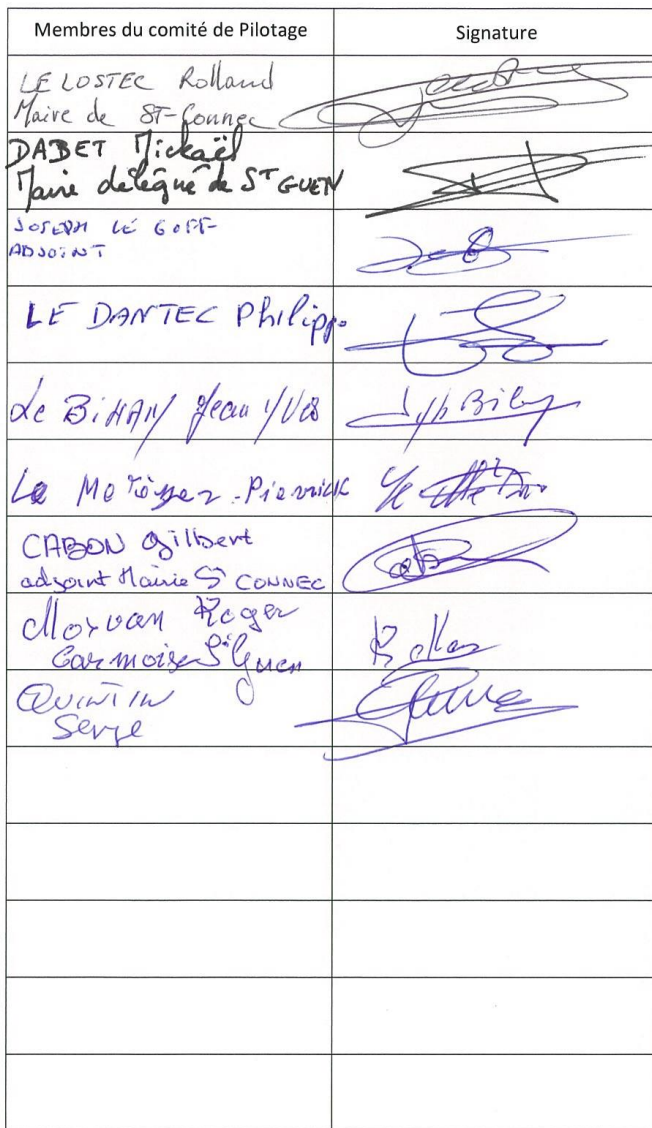 Membres du comité de Pilotage Signature
LE LOSTEC Rolland
Maire de ST-Connec
DABET Mickaël
Maire délégué de ST GUEN
JOSEPH LE GOFF
ADJOINT
LE DANTEC Philippe
Le BiHAN Jean YVes
Le Pierrick
CABON Gilbert
adjoint Mairie ST CONNEC
Morvan Roger
St Guen
QUINTIN
Serge